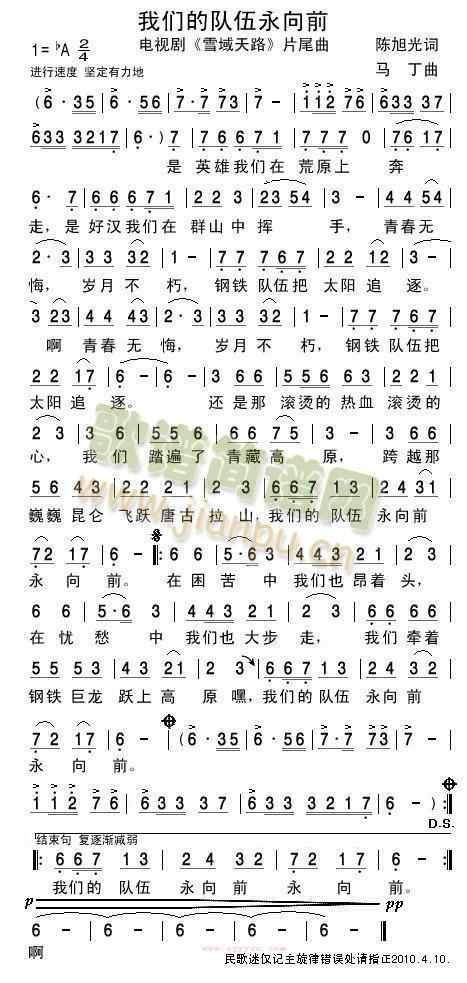 我们的队伍永向前
1=♭A 2/4 电视剧《雪域天路》片尾曲 陈旭光词
进行速度 坚定有力地 马 丁曲
(6· 35 | 6· 56 | 7· 7 73 | 7 - | 1 1 2 76 | 633 33 |
633 3217 | 6· ) 7 | 7 6 6 7 1 | 7 7 7 0 | 76 17 |
是 英雄我们在 荒原上 奔
6· 7 | 6 6 6 7 1 | 2 2 3 | 23 54 | 3 - | 4 4 54 |
走,是 好汉我们在 群山中 挥 手, 青春无
2· 3 | 3 3 2 | 1 - | 7 7 7 6 7 | 2 2 1 7 | 3 - |
悔, 岁月 不 朽, 钢铁 队伍把 太阳 追 逐。
3 23 | 4 4 3 | 2· 3 | 3 3 2 | 1 - | 7 7 7 6 7 |
啊 青春 无 悔, 岁月 不 朽, 钢铁 队伍把
2 2 17 | 6 - | 6 - | 3 6 6 | 5 5 6 6 | 2 2 1 |
太阳 追 逐。 还 是那 滚烫的 热血 滚烫的
2 3 | 3 6 | 5 5 6 | 6 6 75 | 3 - | 3 6 6 |
心, 我 们 踏遍了 青藏高 原, 跨 越那
5 5 6 43 | 2 3 2 1 | 2 3 | 6 6 7 1 3 | 2 4 31 |
巍巍 昆仑 飞跃 唐古 拉 山,我们的 队伍 永向前
72 17 | 6 - :| 6 6 | 5· 6 3 | 4 4 3 5 1 | 2 3 |
永 向 前。 在 困 苦 中 我们也 昂着 头,
6 6 | 5· 6 3 | 4 4 3 2 1 | 2 3 | 6 6 6 |
在 忧 愁 中 我们也 大步 走, 我们 牵着
5 5 3 5 | 4 3 21 | 2 3 | 6 6 7 1 3 | 2 4 31 |
钢铁 巨龙 跃上 高 原嘿,我们的 队伍 永向前
72 17 | 6 - | (6· 35 | 6· 56 | 7· 7 73 | 7 - |
永 向 前。
1 1 2 76 | 633 33 | 633 3217 | 6 - ) :|
D.S.
结束句 复逐渐减弱
|: 6 6 7 1 3 | 2 4 31 | 72 17 | 6 - :|
我们的 队伍 永向前 永 向 前。
p pp
6 - | 6 - | 6 - | 6 - |
啊
民歌迷仅记主旋律错误处请指正2010.4.10.
歌谱简谱网
www.jianpu.cn